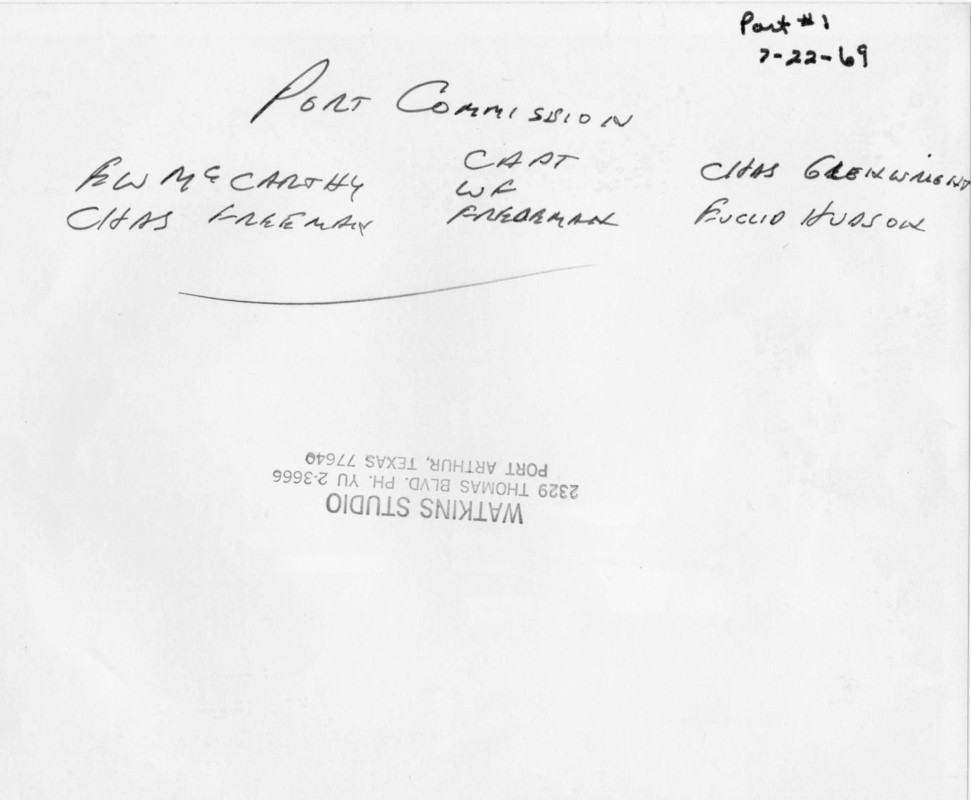 Port #1
7-22-69
PORT COMMISSION
EW McCARTHY CAPT CHAS GLENWRIGHT
WF
CHAS FREEMAN FREDEMAN EUCLID HUDSON
WATKINS STUDIO
2329 THOMAS BLVD. PH. YU 2-3666
PORT ARTHUR, TEXAS 77640